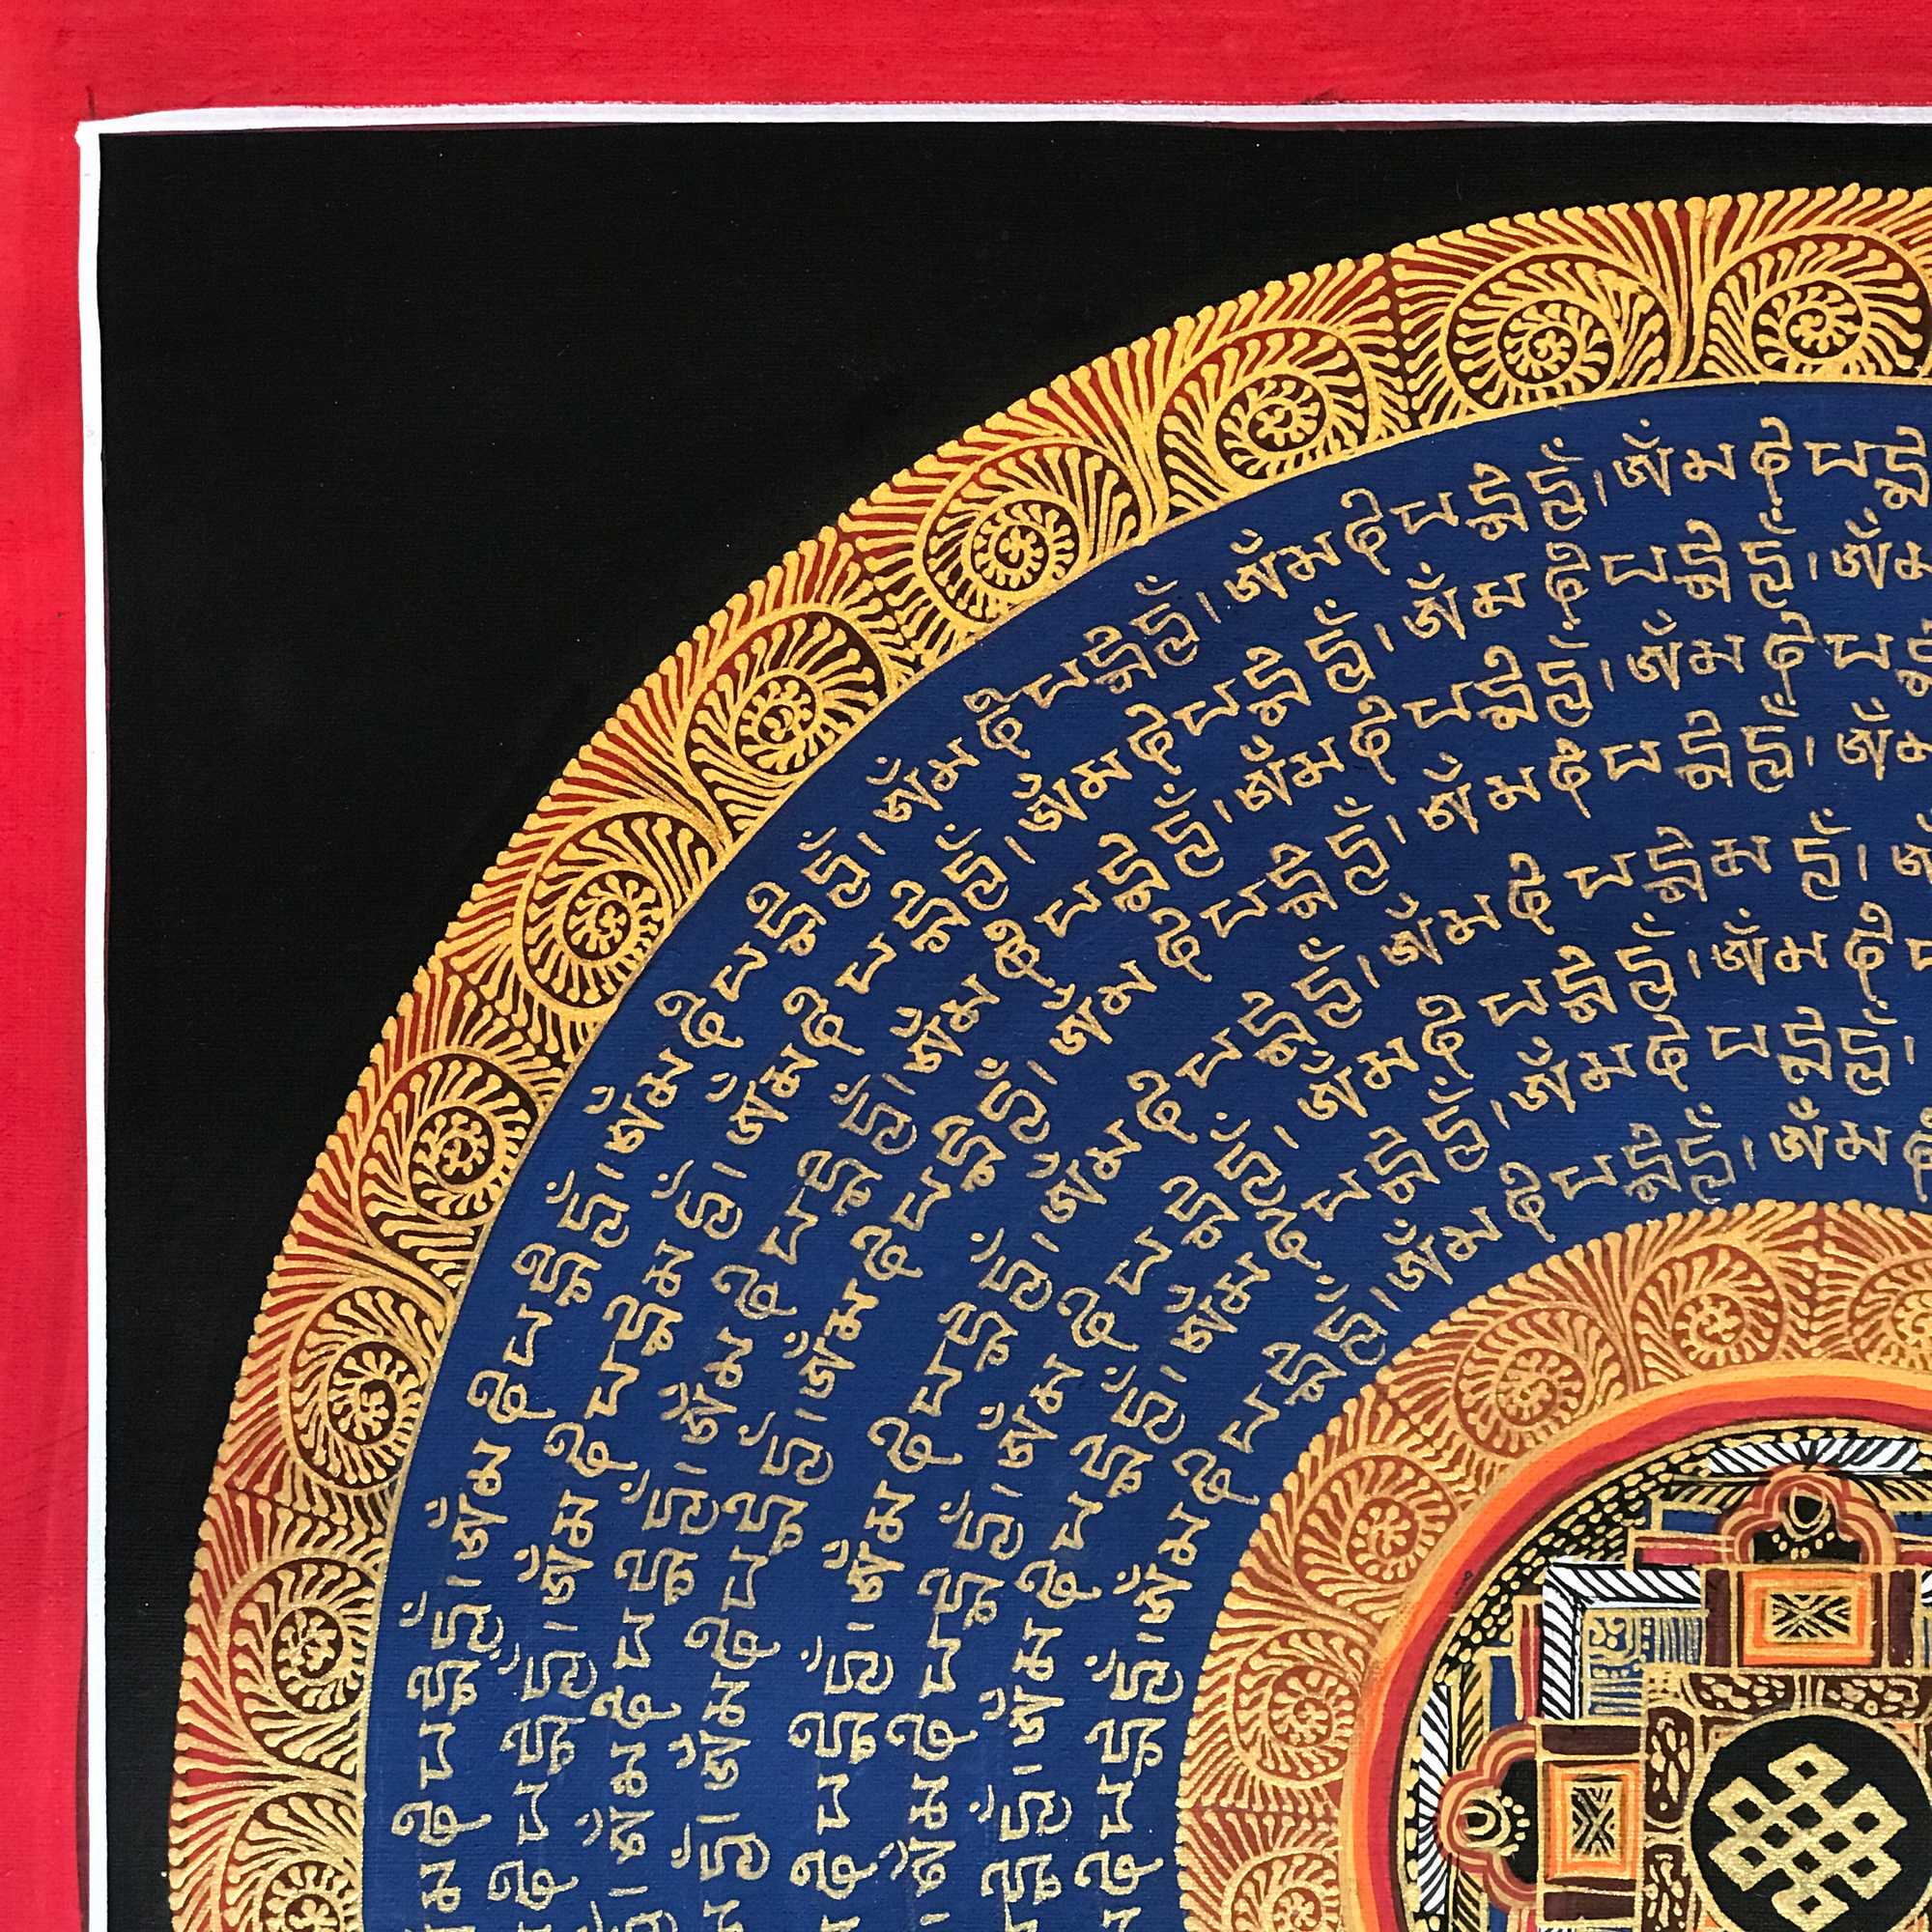 མ ཎི པ དྨེ ཧཱུྃ། ཨོཾ མ ཎི པ དྨེ ཧཱུྃ། ཨོཾ མ ཎི པ དྨེ ཧཱུྃ། ཨོཾ མ ཎི པ དྨེ ཧཱུྃ། ཨོཾ མ ཎི པ དྨེ ཧཱུྃ། ཨོཾ མ ཎི པ དྨེ
ཎི པ དྨེ ཧཱུྃ། ཨོཾ མ ཎི པ དྨེ མ ཧཱུྃ། ཨོཾ མ ཎི པ དྨེ ཧཱུྃ། ཨོཾ མ ཎི པ དྨེ ཧཱུྃ། ཨོཾ མ ཎི པ དྨེ ཧཱུྃ། ཨོཾ མ
ཧཱུྃ། ཨོཾ མ ཎི པ དྨེ ཧཱུྃ། ཨོཾ མ ཎི པ དྨེ ཧཱུྃ། ཨོཾ མ ཎི པ དྨེ ཧཱུྃ། ཨོཾ མ ཎི པ དྨེ ཧཱུྃ། ཨོཾ མ ཎི པ
མ ཧཱུྃ། ཨོཾ མ ཎི པ དྨེ ཧཱུྃ། ཨོཾ མ ཎི པ དྨེ ཧཱུྃ། ཨོཾ མ ཎི པ དྨེ ཧཱུྃ། ཨོཾ མ ཎི པ དྨེ ཧཱུྃ། ཨོཾ མ
ཎི པ དྨེ ཧཱུྃ། ཨོཾ མ ཎི པ དྨེ ཧཱུྃ། ཨོཾ མ ཎི པ དྨེ ཧཱུྃ། ཨོཾ མ ཎི པ དྨེ མ ཧཱུྃ།
ཨོཾ མ ཎི པ དྨེ ཧཱུྃ། ཨོཾ མ ཎི པ དྨེ ཧཱུྃ། ཨོཾ མ ཎི པ དྨེ ཧཱུྃ། ཨོཾ མ ཎི
དྨེ ཧཱུྃ། ཨོཾ མ ཎི པ དྨེ ཧཱུྃ། ཨོཾ མ ཎི པ དྨེ ཧཱུྃ། ཨོཾ མ ཎི པ དྨེ ཧཱུྃ།
ཎི པ དྨེ ཧཱུྃ། ཨོཾ མ ཎི པ དྨེ ཧཱུྃ། ཨོཾ མ ཎི པ དྨེ ཧཱུྃ། ཨོཾ མ